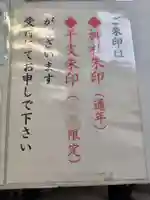 ご朱印は
◆御朱印（通年）
◆干支朱印（限定）
がございます
受付にてお申しで下さい